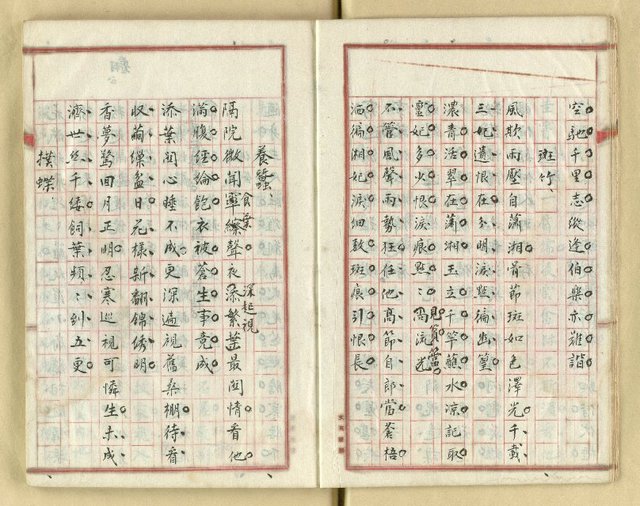 空馳千里志縱逢伯樂亦難諧
斑竹
風欺雨壓自瀟湘骨節斑如色澤光千載
三妃遺恨在分明淚點徧幽篁
濃青活翠在瀟湘玉立千竿蘸水涼記取
靈妃多少恨淚痕點點為流光
見篔簹
不管風聲雨勢狂任他高節自郎當蒼梧
湎徧湘妃淚細數斑痕引恨長
養蠶
隔院微聞食葉聲夜深繁蠶最關情看他
深起視
滿腹經綸飽衣被蒼生事竟成
添葉關心睡不成更深遍視舊桑棚待看
收繭繰盆日花樣新翻錦綉明
香夢驚回月正明忍寒巡視可憐生未成
濟世絲千縷飼葉頻頻到五更
撲蝶